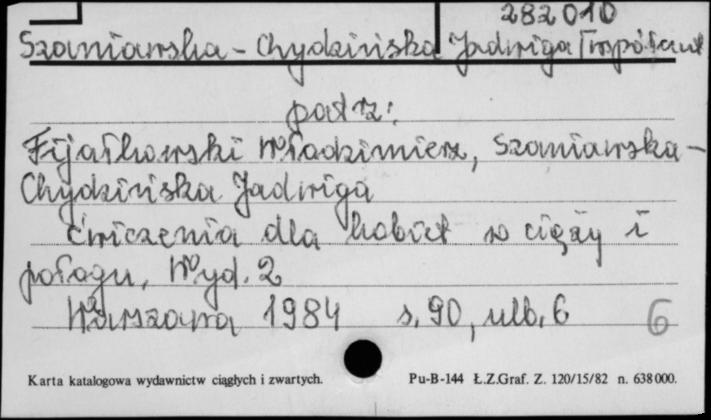 282010
Szaniawska-Chydzińska Jadwiga [współaut
patrz:
Fijałkowski Włodzimierz, Szaniawska-
Chydzińska Jadwiga
Ćwiczenia dla kobiet w ciąży i
połogu, Wyd. 2
Warszawa 1984 s. 90, nlb. 6
6
Karta katalogowa wydawnictw ciągłych i zwartych. Pu-B-144 Ł.Z.Graf. Z. 120/15/82 n. 638000.